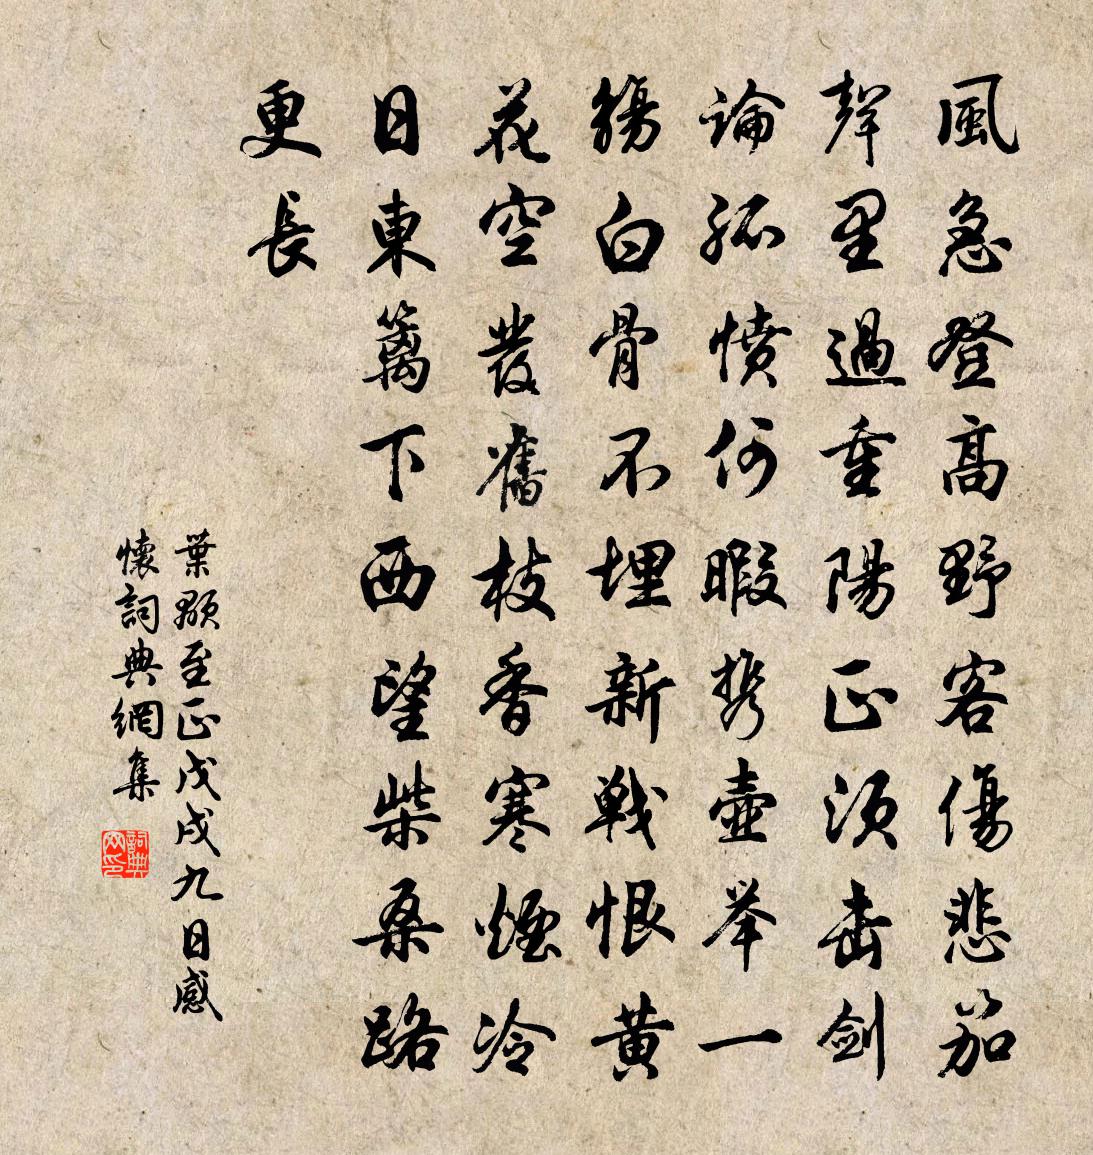 風急登高野客傷悲笳
聲里過重陽正須击劍
論孤憤何暇携壺举一
觴白骨不埋新戰恨黃
花空發舊枝香寒煙冷
日東籬下西望柴桑路
更長
葉顒至正戊戌九日感
懷詞典網集
詞典
网印